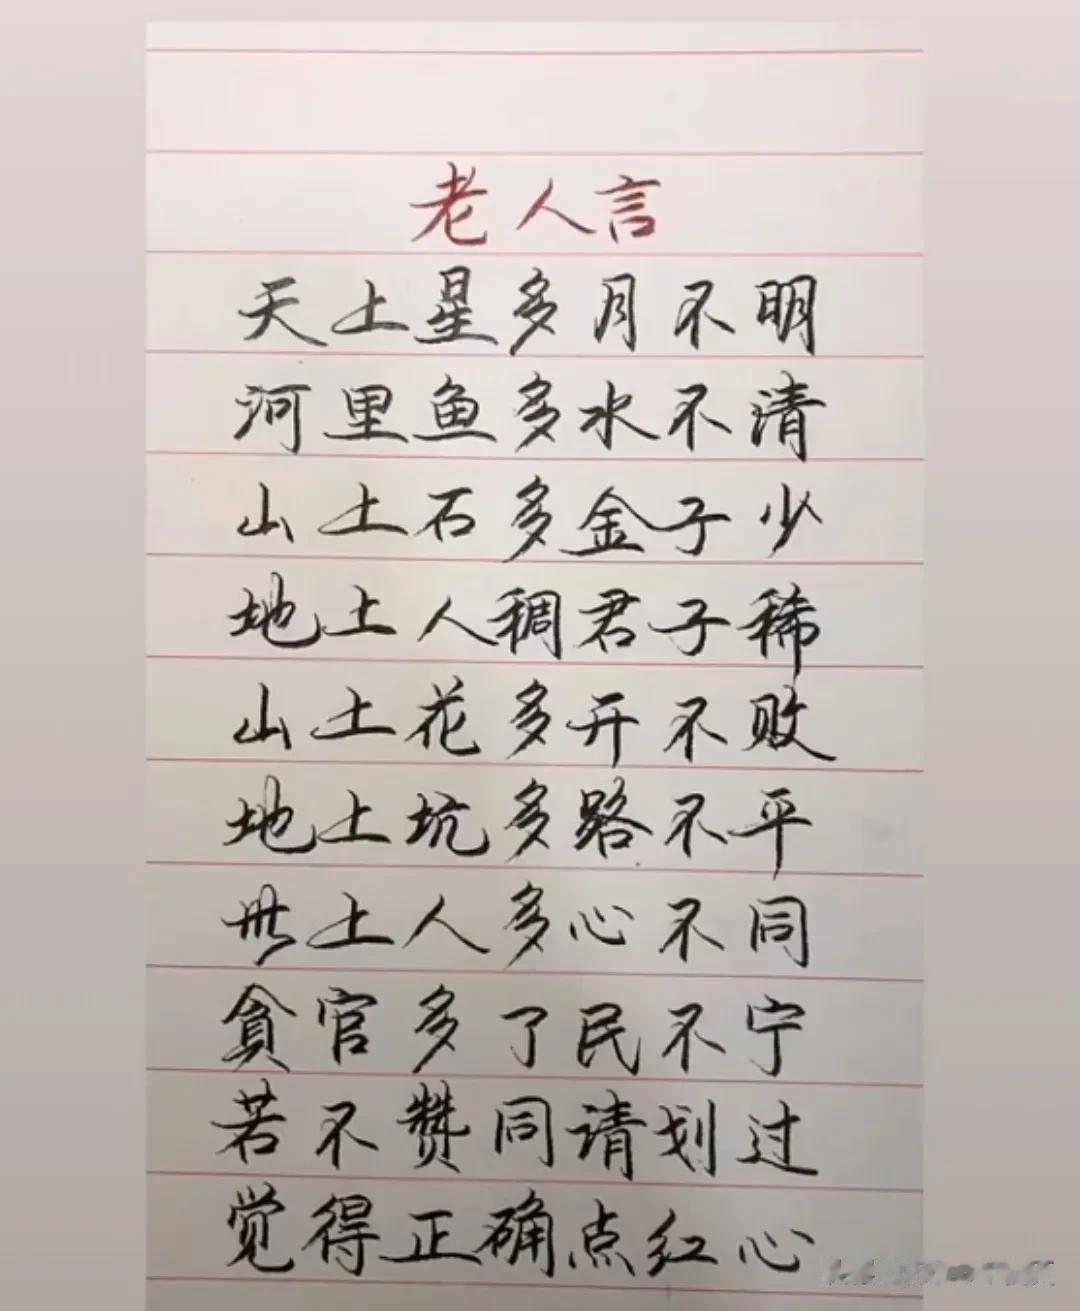 老人言
天上星多月不明
河里鱼多水不清
山上石多金子少
地上人稠君子稀
山上花多开不败
地上坑多路不平
世上人多心不同
贪官多了民不宁
若不赞同请划过
觉得正确点红心